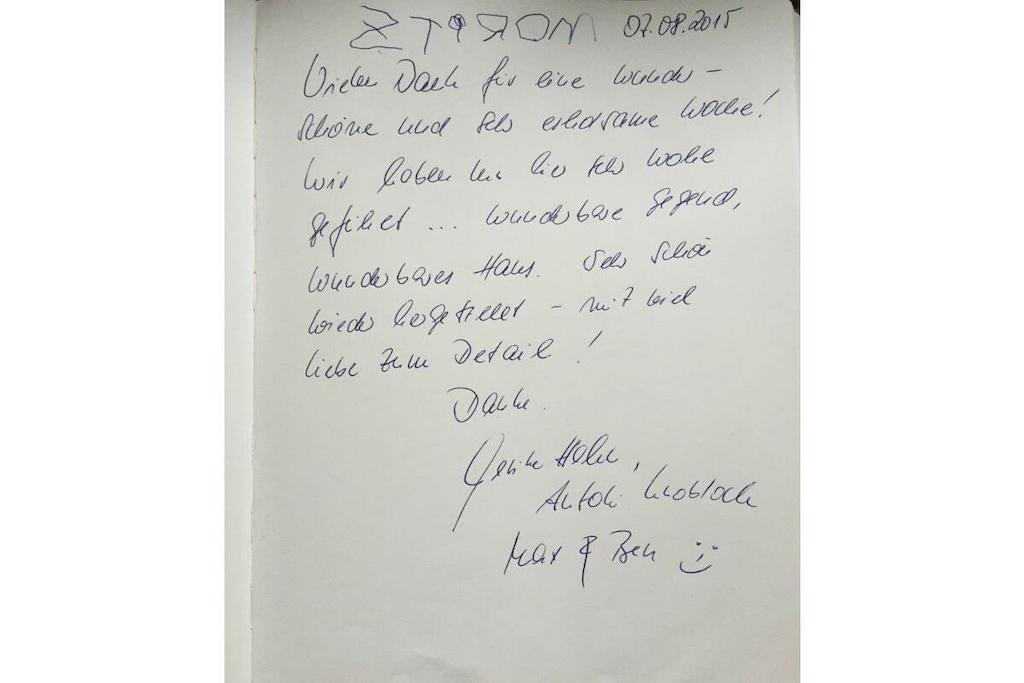 MORITZ 07.08.2015
Vielen Dank für eine wunder-
schöne und sehr erholsame Woche!
Wir haben uns hier sehr wohl
gefühlt ... wunderbare Gegend,
wunderbares Haus. Sehr schön
wieder hergestellt - mit viel
Liebe zum Detail!
Danke.
Hahn,
Knobloch
Max & Ben